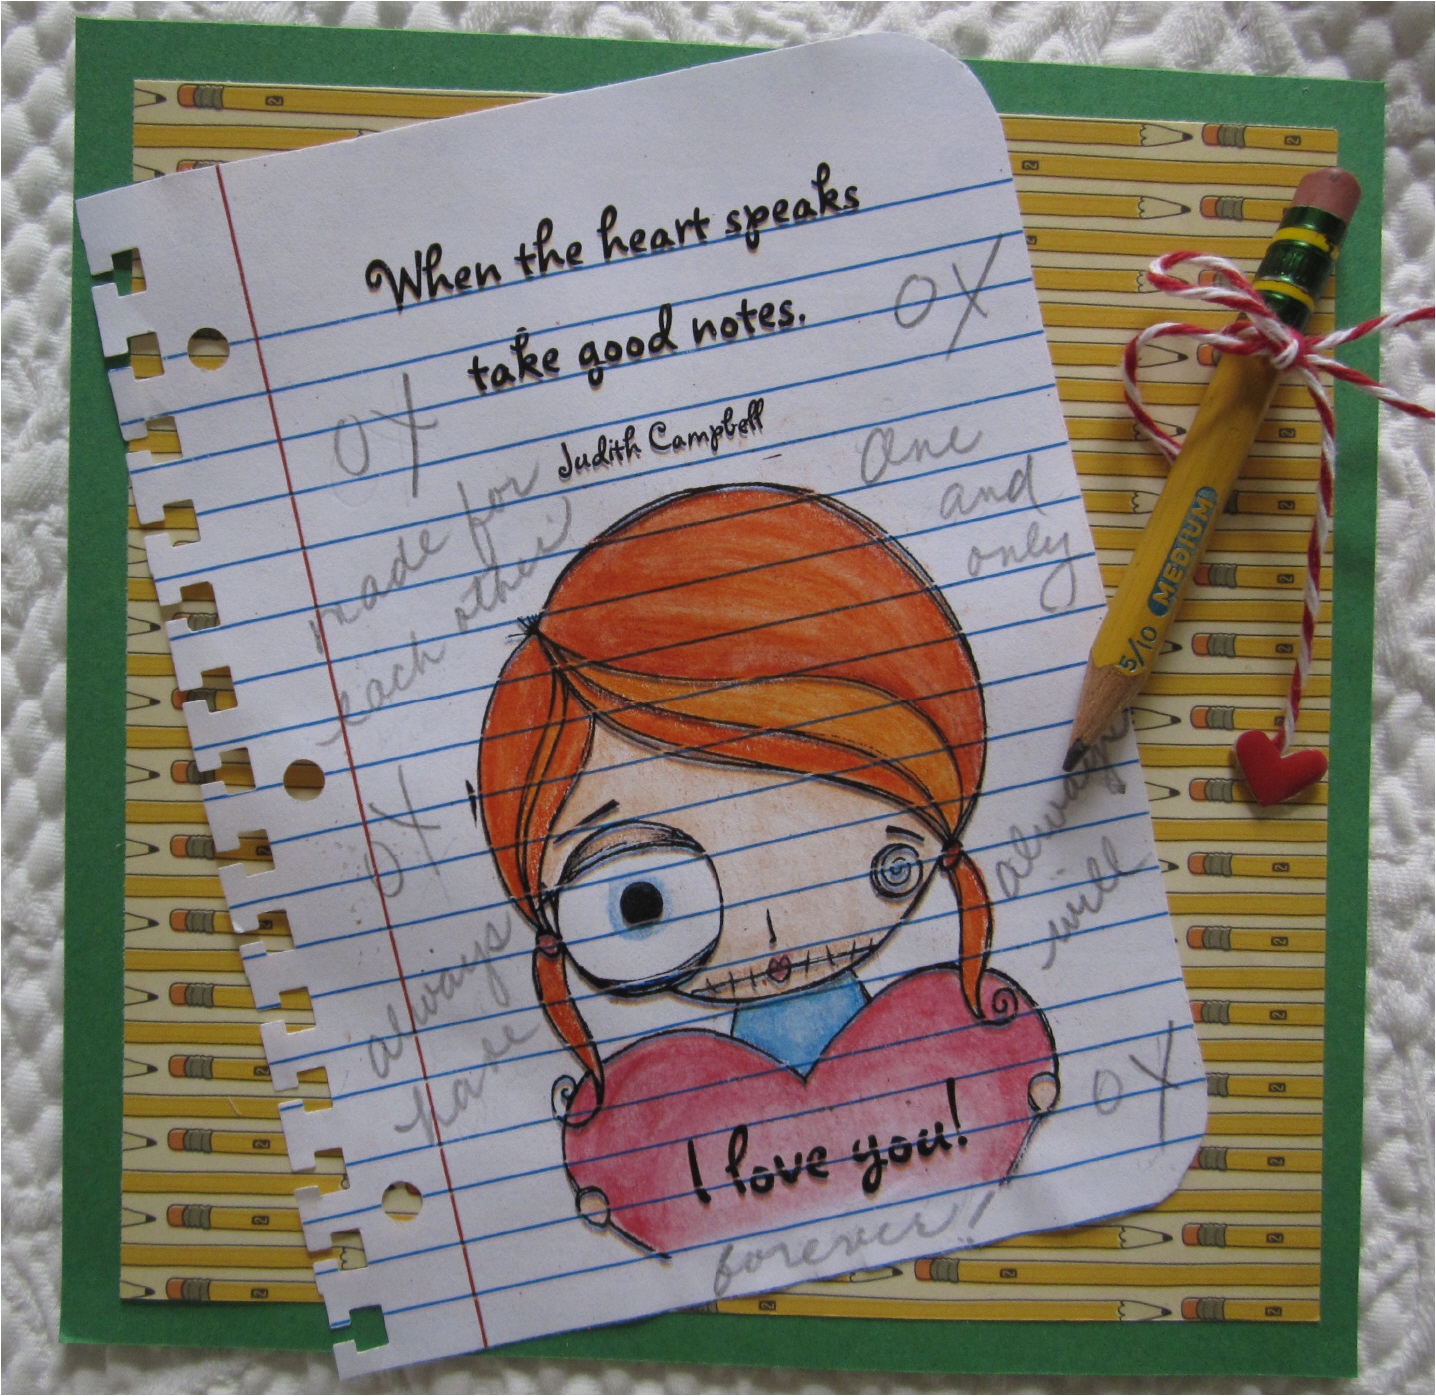 When the heart speaks
take good notes.
Judith Campbell
OX
OX
made for
each other
One
and
only
OX
always
have
always
will
OX
I love you!
forever!!
MEDIUM
5/10